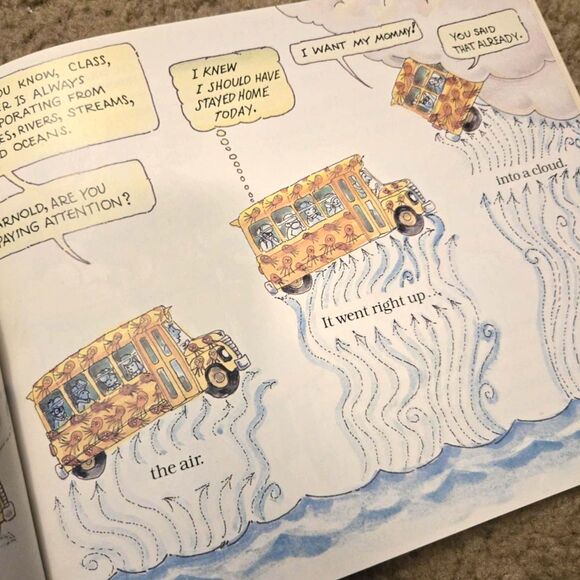 OU KNOW, CLASS,
ER IS ALWAYS
PORATING FROM
ES, RIVERS, STREAMS,
D OCEANS.
ARNOLD, ARE YOU
PAYING ATTENTION?
I KNEW
I SHOULD HAVE
STAYED HOME
TODAY.
I WANT MY MOMMY!
YOU SAID
THAT ALREADY.
the air.
It went right up
into a cloud.